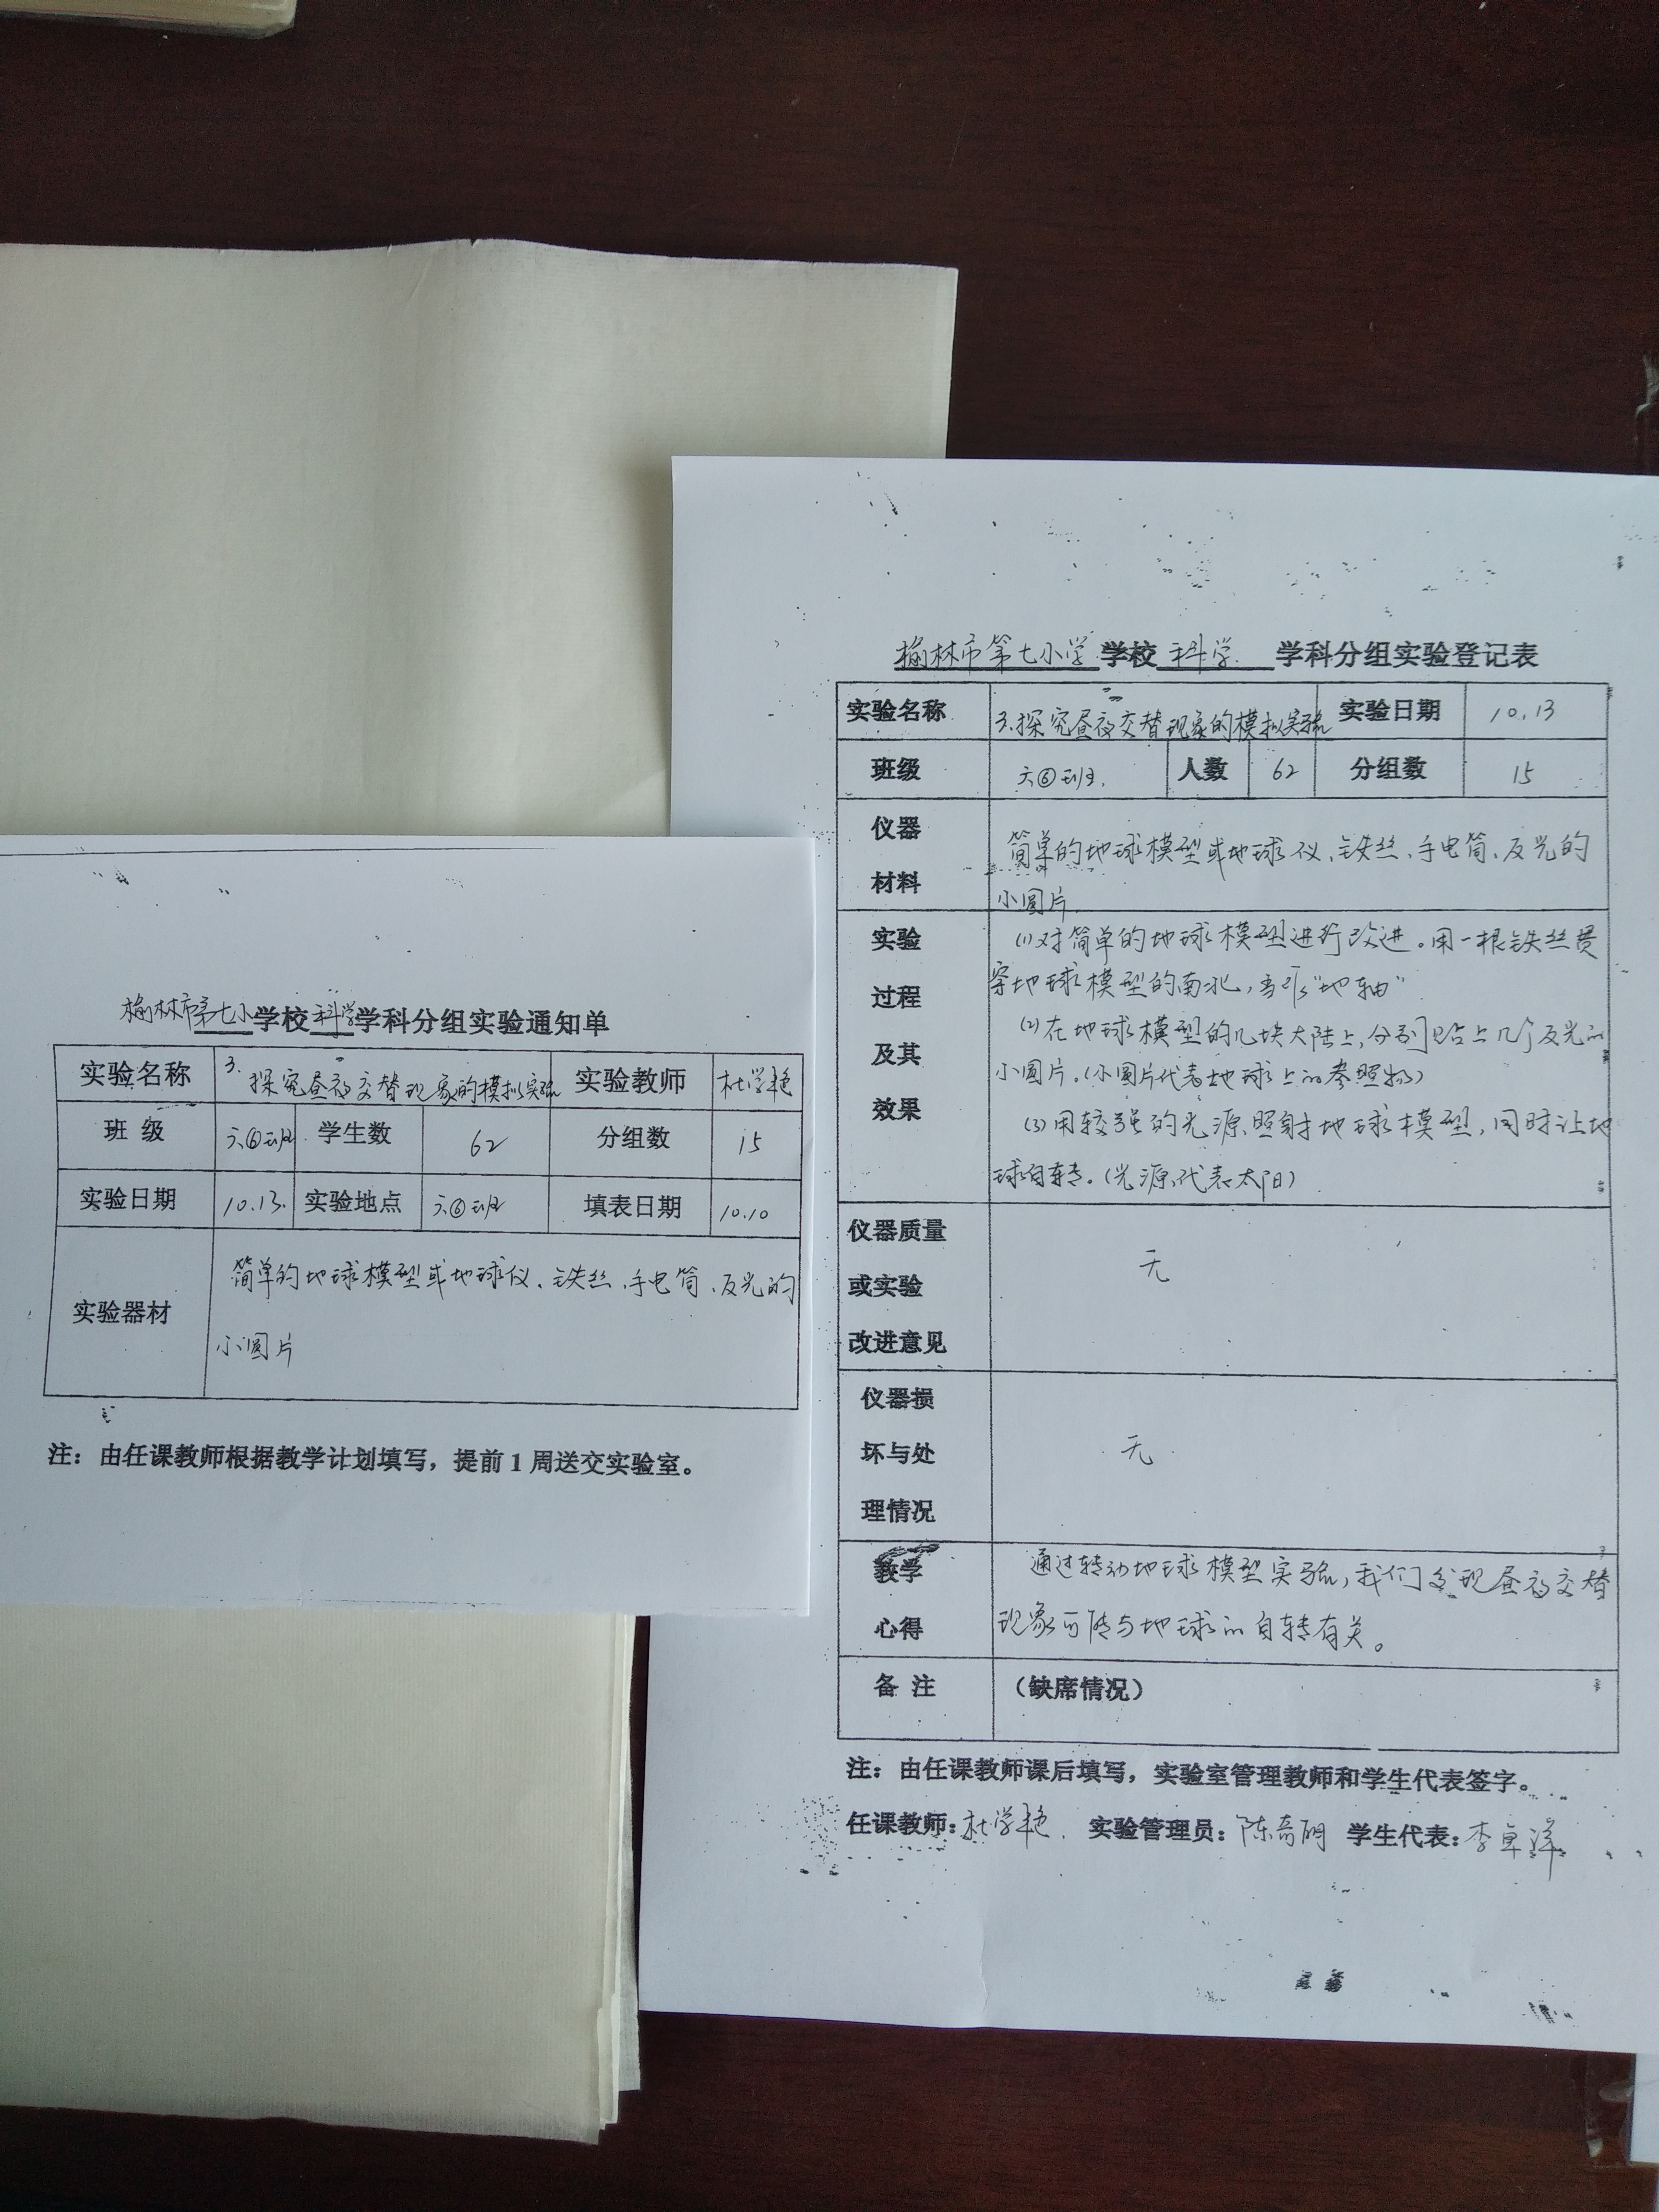 榆林市第七小学校科学学科分组实验通知单
实验名称 3.探究昼夜交替现象的模拟实验 实验教师 杜学艳
班 级 六⑥班 学生数 62 分组数 15
实验日期 10.13. 实验地点 六⑥班 填表日期 10.10
实验器材 简单的地球模型或地球仪、铁丝、手电筒、反光的
小圆片
注：由任课教师根据教学计划填写，提前1周送交实验室。
榆林市第七小学学校科学 学科分组实验登记表
实验名称 3.探究昼夜交替现象的模拟实验 实验日期 10.13
班级 六⑥班. 人数 62 分组数 15
仪器
材料
简单的地球模型或地球仪、铁丝、手电筒、反光的
小圆片.
实验
过程
及其
效果
(1)对简单的地球模型进行改进。用一根铁丝贯
穿地球模型的南北，当作“地轴”
(2)在地球模型的几块大陆上，分别贴上几个反光的
小圆片。(小圆片代表地球上的参照物)
(3)用较强的光源照射地球模型，同时让地
球自转。(光源代表太阳)
仪器质量
或实验
改进意见
无
仪器损
坏与处
理情况
无
教学
心得
通过转动地球模型实验，我们发现昼夜交替
现象可能与地球的自转有关。
备 注 （缺席情况）
注：由任课教师课后填写，实验室管理教师和学生代表签字。
任课教师：杜学艳. 实验管理员：陈奇明 学生代表：李卓洋